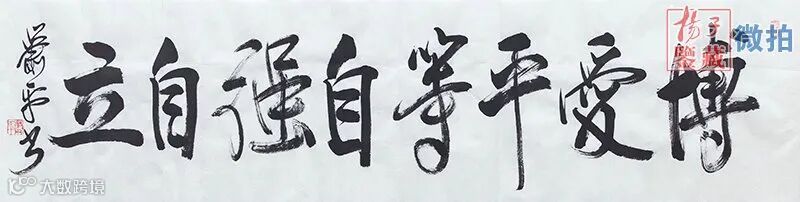 博愛平等自强自立
微拍
大数跨境